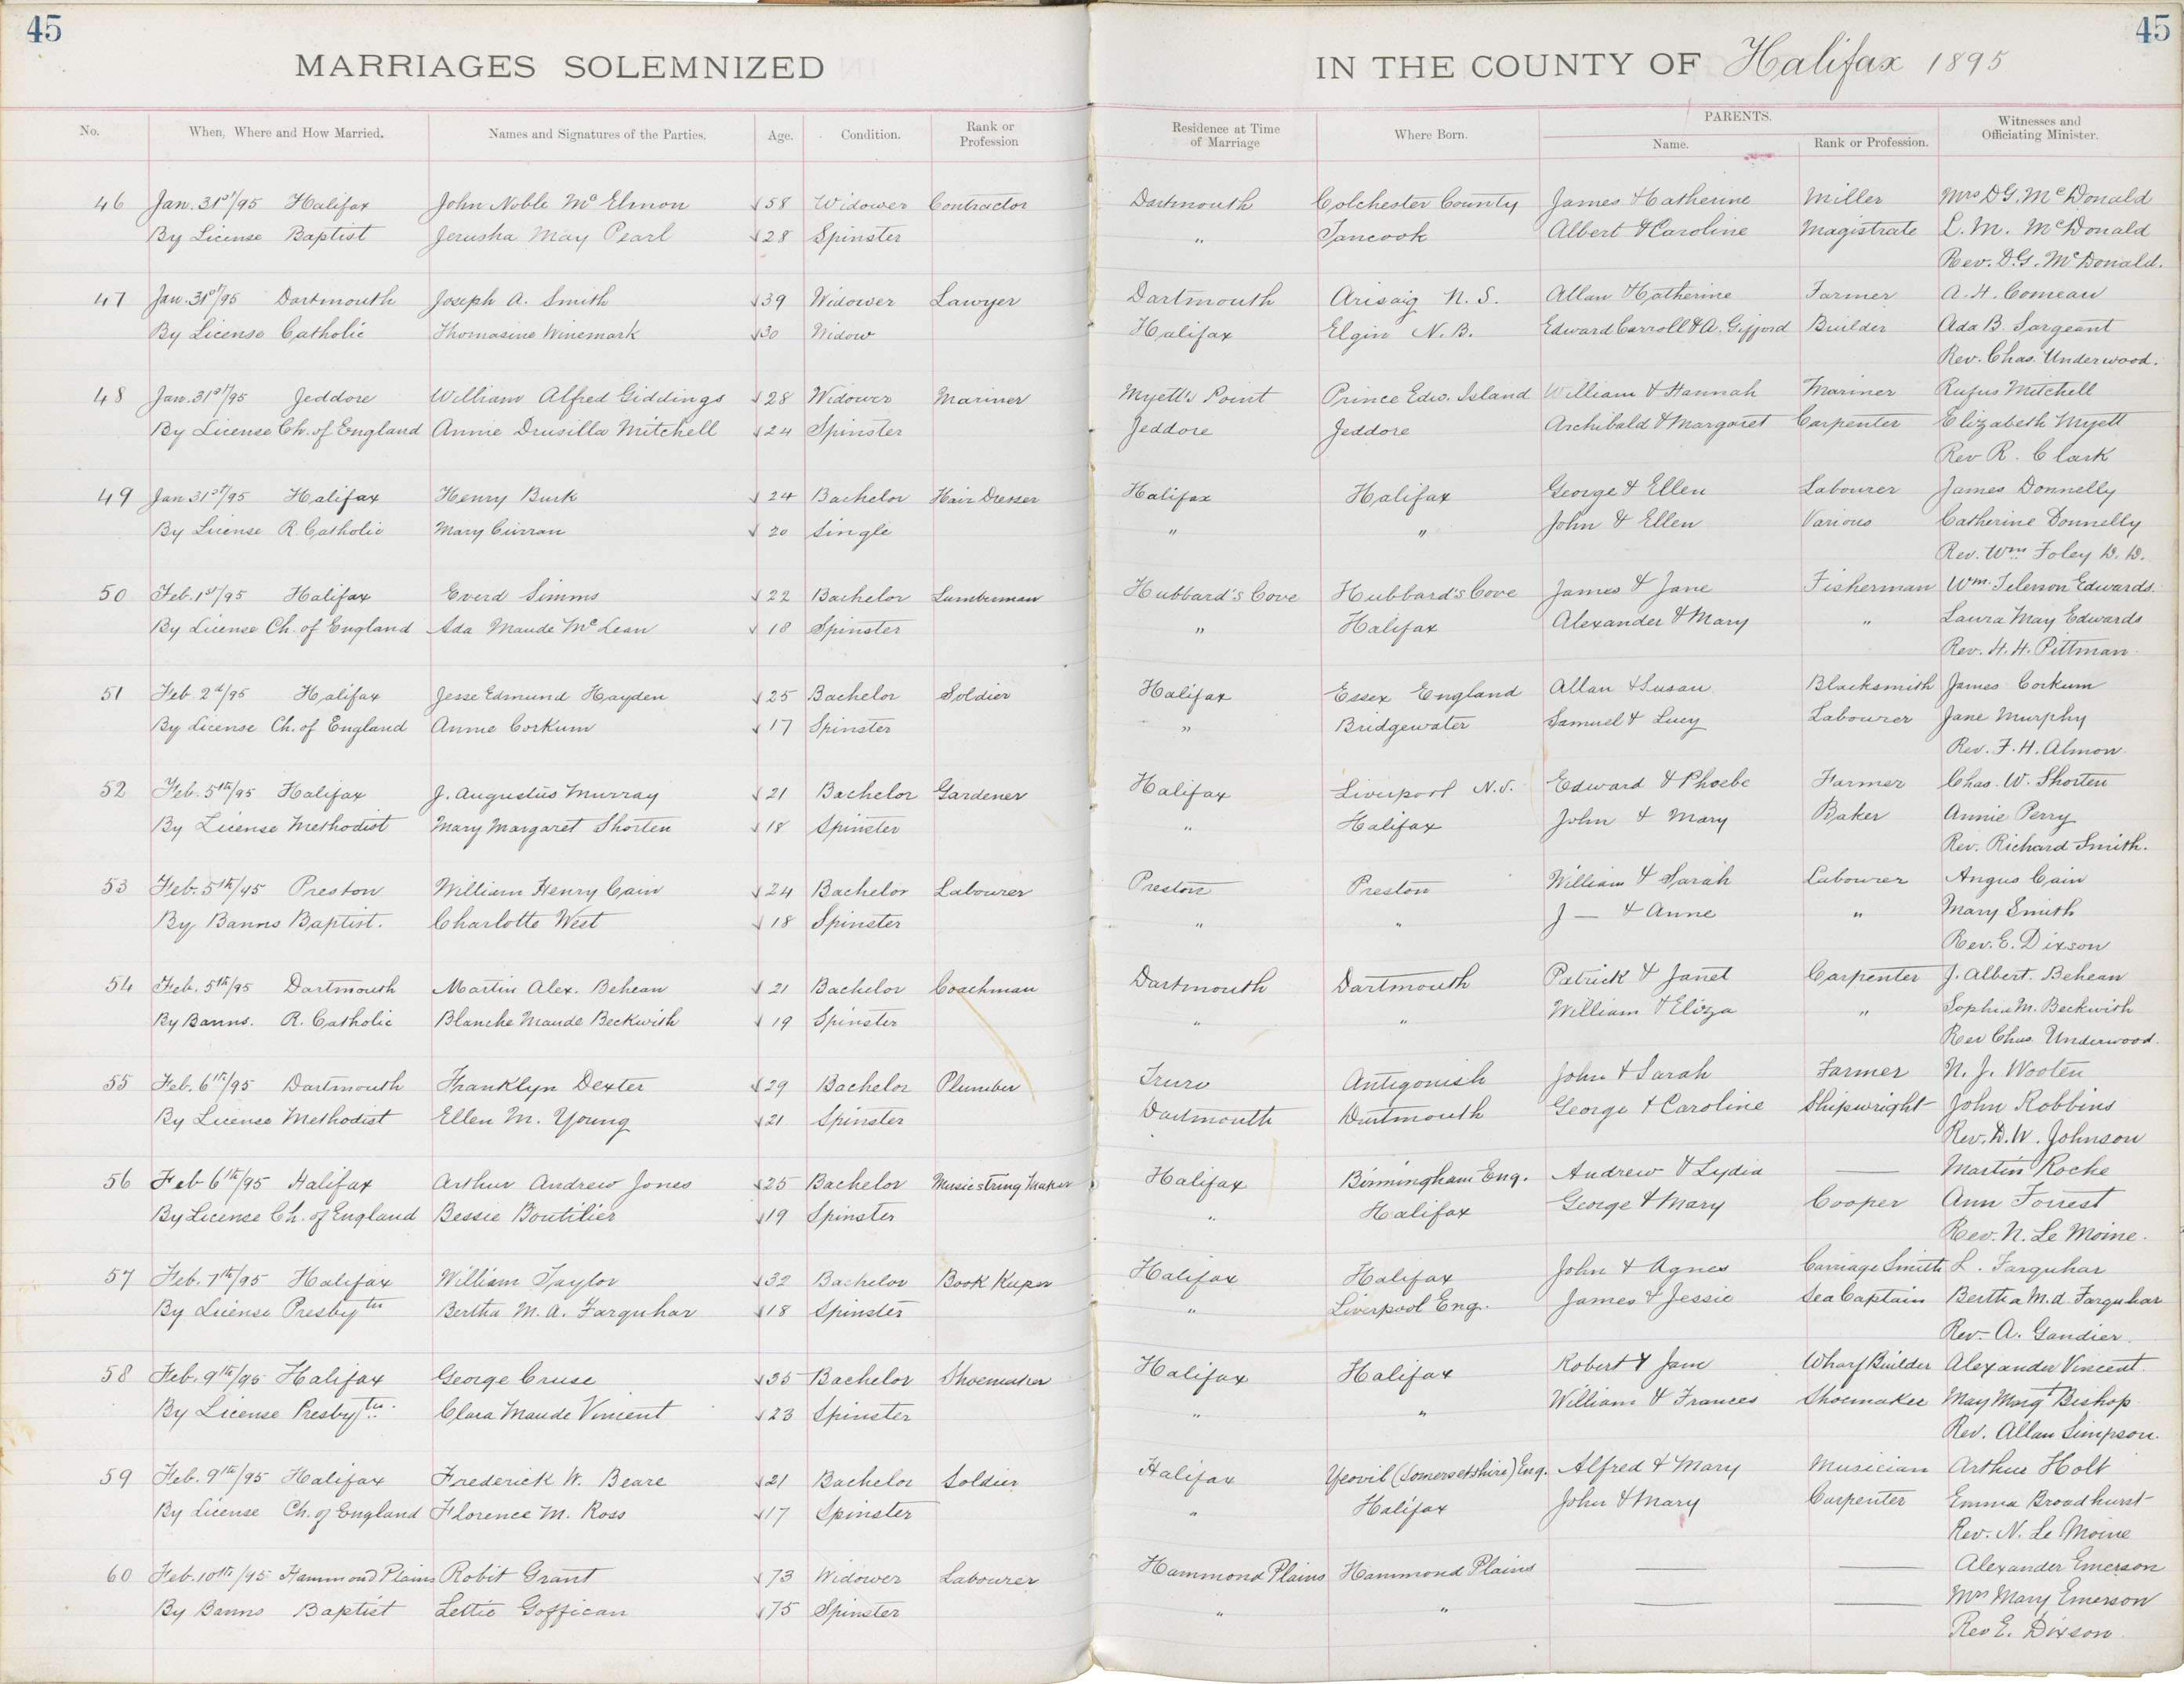 45
45
MARRIAGES SOLEMNIZED IN THE COUNTY OF Halifax 1895
No. When, Where and How Married. Names and Signatures of the Parties. Age. Condition. Rank or Profession Residence at Time of Marriage Where Born. PARENTS. Name. Rank or Profession. Witnesses and Officiating Minister.
46 Jan. 31st/95 Halifax John Noble McElmon 58 Widower Contractor Dartmouth Colchester County James & Catherine Miller Mrs D.G. McDonald
By License Baptist Jerusha May Pearl 28 Spinster " Tancook Albert & Caroline Magistrate L. M. McDonald
Rev. D.G. McDonald.
47 Jan. 31st/95 Dartmouth Joseph A. Smith 39 Widower Lawyer Dartmouth Arisaig N. S. Allan & Catherine Farmer A. H. Comeau
By License Catholic Thomasine Winemark 30 Widow Halifax Elgin N. B. Edward Carroll & A. Gifford Builder Ada B. Sargeant
Rev. Chas. Underwood.
48 Jan. 31st/95 Jeddore William Alfred Giddings 28 Widower Mariner Myett's Point Prince Edw. Island William & Hannah Mariner Rufus Mitchell
By License Ch. of England Annie Drusilla Mitchell 24 Spinster Jeddore Jeddore Archibald & Margaret Carpenter Elizabeth Myett
Rev R. Clark
49 Jan 31st/95 Halifax Henry Burk 24 Bachelor Hair Dresser Halifax Halifax George & Ellen Labourer James Donnelly
By License R. Catholic Mary Curran 20 Single " " John & Ellen Various Catherine Donnelly
Rev. Wm Foley D. D.
50 Feb. 1st/95 Halifax Everd Simms 22 Bachelor Lumberman Hubbard's Cove Hubbard's Cove James & Jane Fisherman Wm. Edwards.
By License Ch. of England Ada Maude McLean 18 Spinster " Halifax Alexander & Mary " Laura May Edwards
Rev. H. H. Pittman.
51 Feb. 2d/95 Halifax Jesse Edmund Hayden 25 Bachelor Soldier Halifax Essex England Allan & Susan Blacksmith James Corkum
By License Ch. of England Annie Corkum 17 Spinster " Bridgewater Samuel & Lucy Labourer Jane Murphy
Rev. F. H. Almon.
52 Feb. 5th/95 Halifax J. Augustus Murray 21 Bachelor Gardener Halifax Liverpool N.S. Edward & Phoebe Farmer Chas. W. Shorten
By License Methodist Mary Margaret Shorten 18 Spinster " Halifax John & Mary Baker Annie Perry
Rev. Richard Smith.
53 Feb. 5th/95 Preston William Henry Cain 24 Bachelor Labourer Preston Preston William & Sarah Labourer Angus Cain
By Banns Baptist. Charlotte West 18 Spinster " " J — & Anne " Mary Smith
Rev. E. Dixson
54 Feb. 5th/95 Dartmouth Martin Alex. Behean 21 Bachelor Coachman Dartmouth Dartmouth Patrick & Janet Carpenter J. Albert. Behean
By Banns. R. Catholic Blanche Maude Beckwith 19 Spinster " " William & Eliza " Sophia M. Beckwith
Rev Chas. Underwood.
55 Feb. 6th/95 Dartmouth Franklyn Dexter 29 Bachelor Plumber Truro Antigonish John & Sarah Farmer N. J. Wooten
By License Methodist Ellen M. Young 21 Spinster Dartmouth Dartmouth George & Caroline Shipwright John Robbins
Rev. D. W. Johnson
56 Feb 6th/95 Halifax Arthur Andrew Jones 25 Bachelor Music string Maker Halifax Birmingham Eng. Andrew & Lydia — Martin Roche
By License Ch. of England Bessie Boutilier 19 Spinster " Halifax George & Mary Cooper Ann Forrest
Rev. N. Le Moine.
57 Feb. 7th/95 Halifax William Taylor 32 Bachelor Book Keeper Halifax Halifax John & Agnes Carriage Smith L. Farquhar
By License Presbyten Bertha M. A. Farquhar 18 Spinster " Liverpool Eng. James & Jessie Sea Captain Bertha M. d. Farquhar
Rev. A. Gandier.
58 Feb. 9th/95 Halifax George Cruse 35 Bachelor Shoemaker Halifax Halifax Robert & Jane Wharf Builder Alexander Vincent
By License Presbyten. Clara Maude Vincent 23 Spinster " " William & Frances Shoemaker May Margt Bishop
Rev. Allan Simpson.
59 Feb. 9th/95 Halifax Frederick W. Beare 21 Bachelor Soldier Halifax Yeovil (Somersetshire) Eng. Alfred & Mary Musician Arthur Holt
By License Ch. of England Florence M. Ross 17 Spinster " Halifax John & Mary Carpenter Emma Broadhurst
Rev. N. Le Moine
60 Feb. 10th/95 Hammond Plains Robit Grant 73 Widower Labourer Hammond Plains Hammond Plains — — Alexander Emerson
By Banns Baptist Lettie Goffican 75 Spinster " " — — Mrs Mary Emerson
Rev E. Dixson.